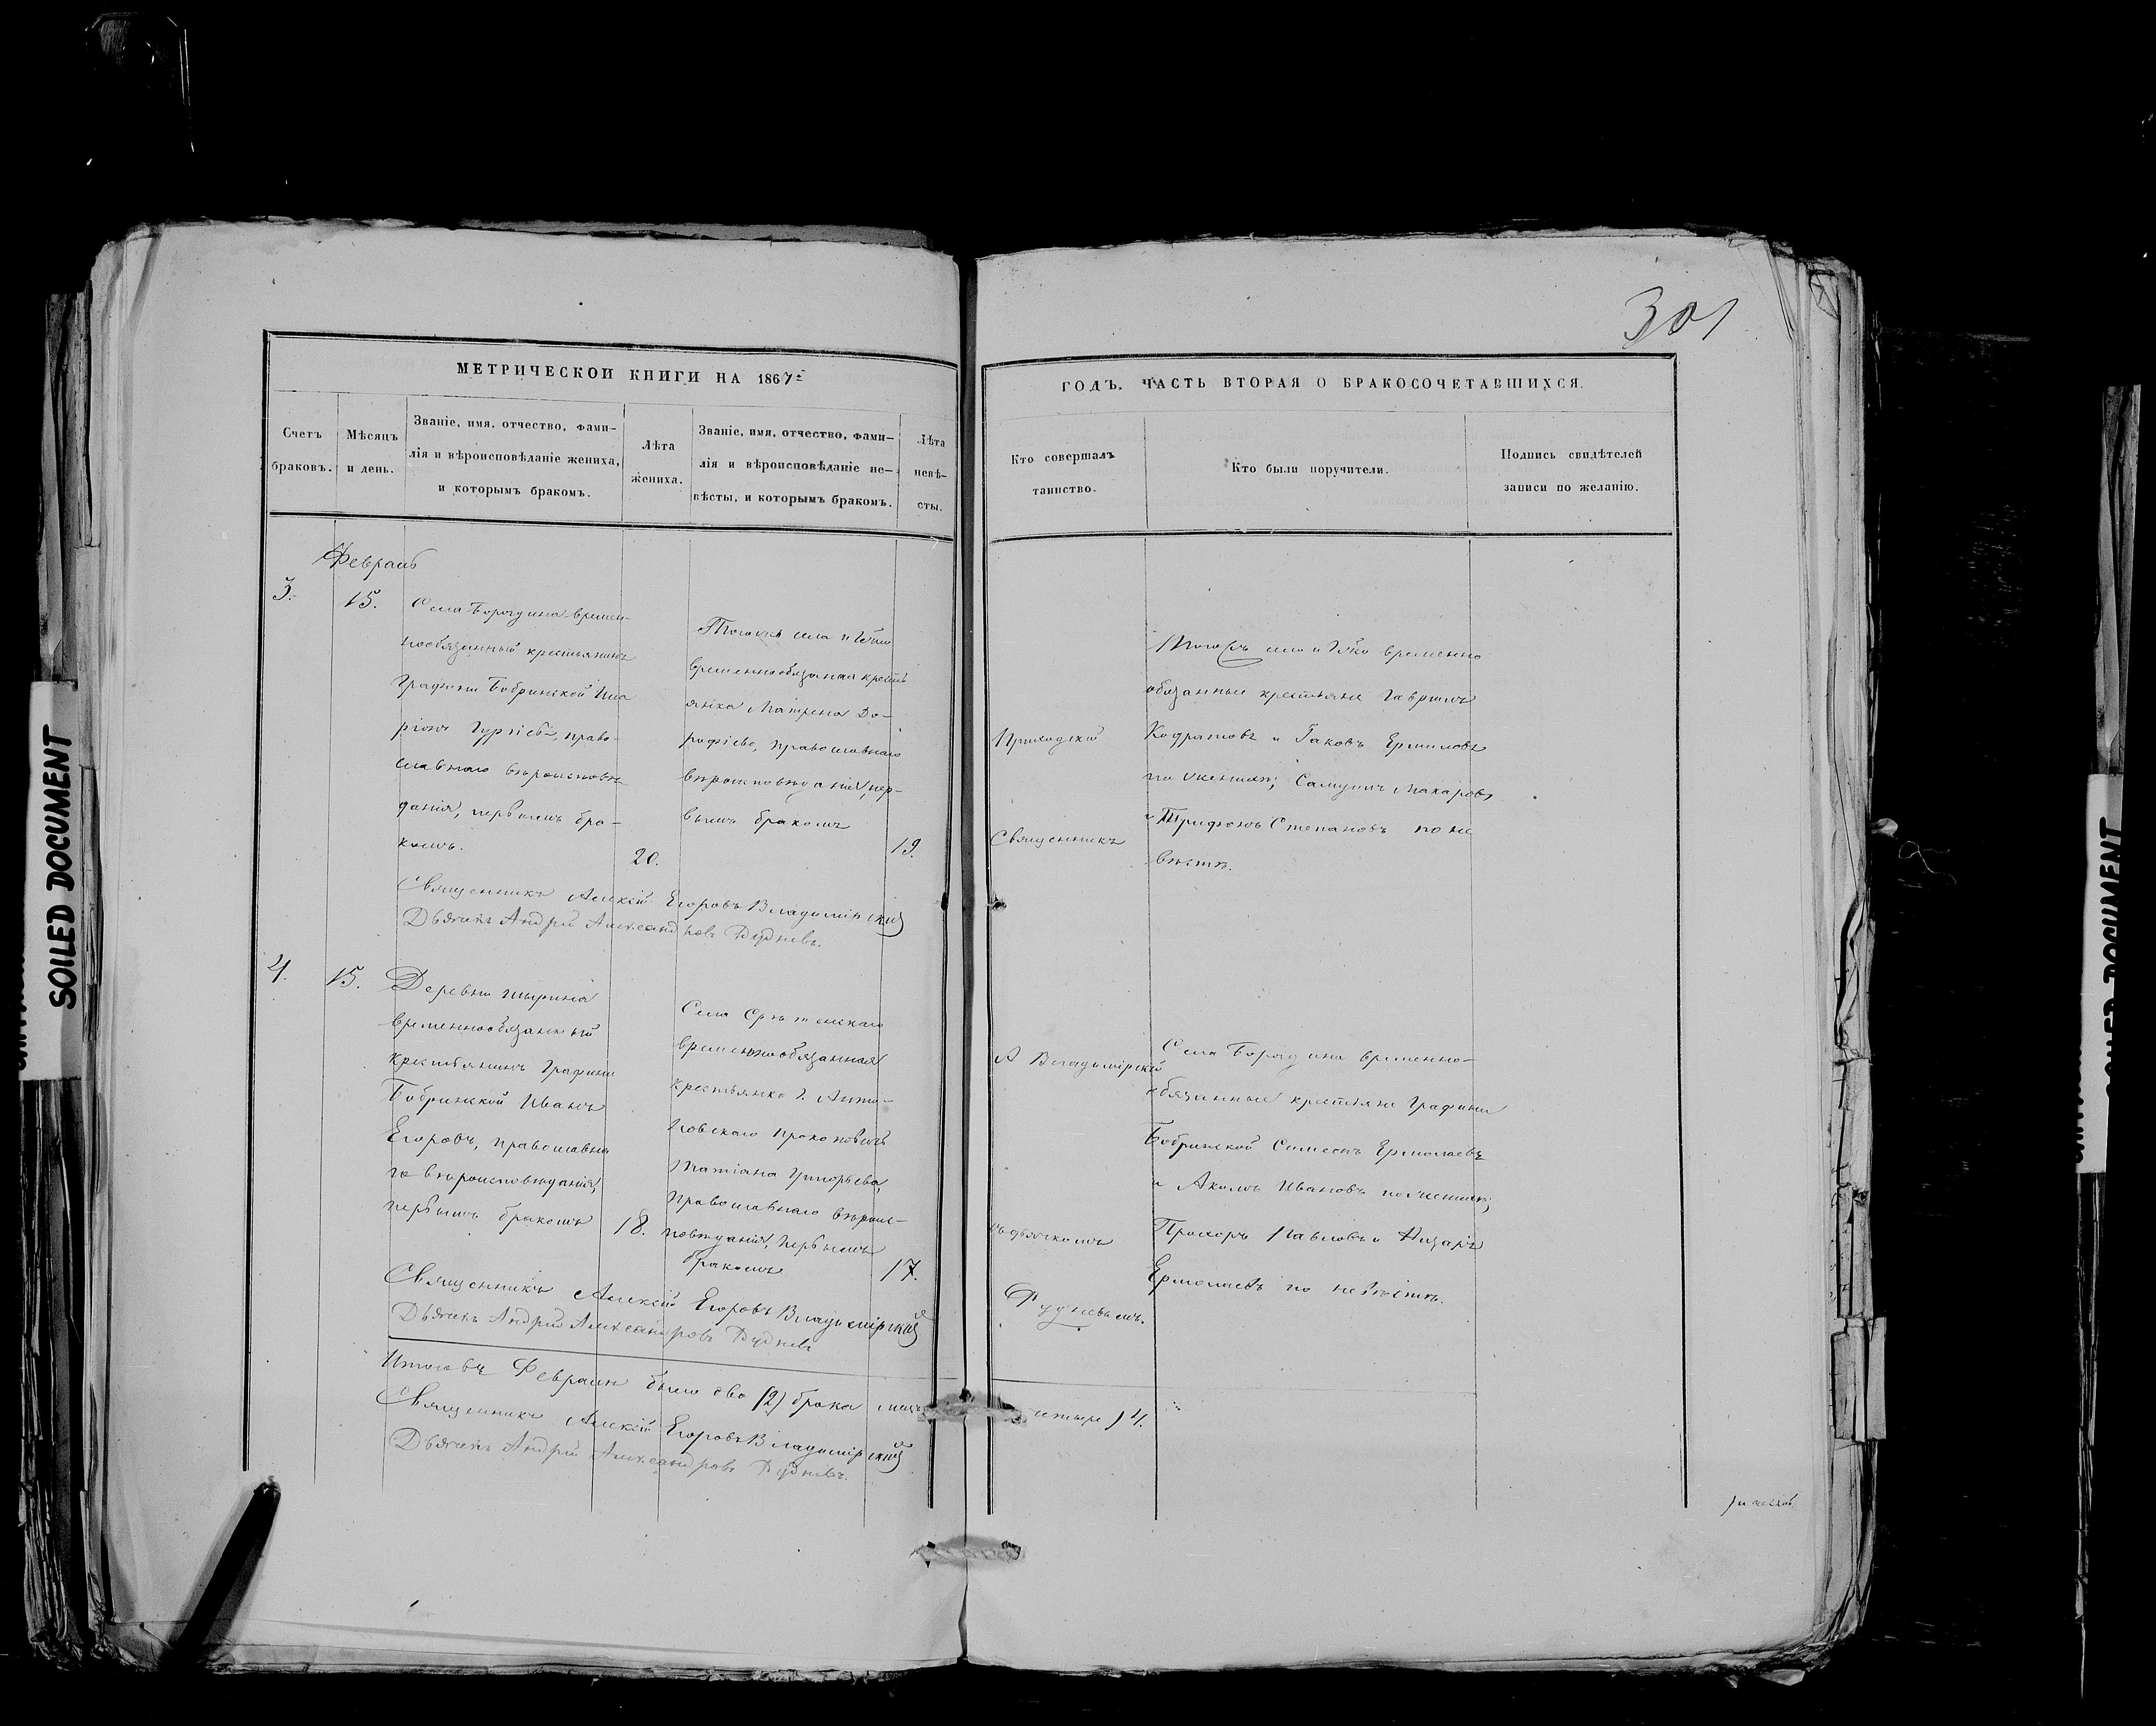 301
МЕТРИЧЕСКОЙ КНИГИ НА 1867
ГОДЪ. ЧАСТЬ ВТОРАЯ О БРАКОСОЧЕТАВШИХСЯ.
Счетъ
браковъ.
Мѣсяцъ
и день.
Званіе, имя, отчество, фами-
лія и вѣроисповѣданіе жениха,
и которымъ бракомъ.
Лѣта
жениха.
Званіе, имя, отчество, фами-
лія и вѣроисповѣданіе не-
вѣсты, и которымъ бракомъ.
Лѣта
невѣ-
сты.
Кто совершалъ
таинство.
Кто были поручители.
Подпись свидѣтелей
записи по желанію.
Февраль
3.
15.
Села Бородина времен-
нообязанный крестьянинъ
Графини Бобринской Ила
ріонъ Гурьевъ, право-
славнаго вѣроисповѣ
данія, первымъ бра-
комъ.
20.
Тогоже села и
временнообязаная кресть
янка Матрена До-
рофѣева, православнаго
вѣроисповѣданія, пер-
вымъ бракомъ
19.
Приходскій
Священникъ
Тогожъ села и временно
обязанные крестьяне Гаврилъ
Кодратовъ и Іаковъ Ермиловъ
по женихѣ; Самуилъ Макаровъ
и Трифонъ Степановъ по не
вѣстѣ.
Священникъ Алексій Егоровъ Владимірскій
Дьячекъ Андрей Александровъ Рудневъ.
4.
15.
Деревни
временнообязанный
крестьянинъ Графини
Бобринской Иванъ
Егоровъ, православна
го вѣроисповѣданія,
первымъ бракомъ
18.
Села Срѣтенскаго
временнообязанная
крестьянка Г.
Татіана Григорьева,
Православнаго вѣроис-
повѣданія, первымъ
бракомъ
17.
А Владимірскій
съ дьячкомъ
Рудневымъ.
Села Бородина временно-
обязанные крестьяне Графини
Бобринской Симеонъ Ермолаевъ
и Акимъ Ивановъ по женихѣ;
Прохоръ Павловъ и Назаръ
Ермолаевъ по невѣстѣ.
Священникъ Алексій Егоровъ Владимірскій
Дьячекъ Андрей Александровъ Рудневъ
Итого въ Февралѣ было два (2) брака
четыре) 4.
Священникъ Алексій Егоровъ Владимірскій
Дьячекъ Андрей Александровъ Рудневъ.
SOILED DOCUMENT
SOILED DOCUMENT